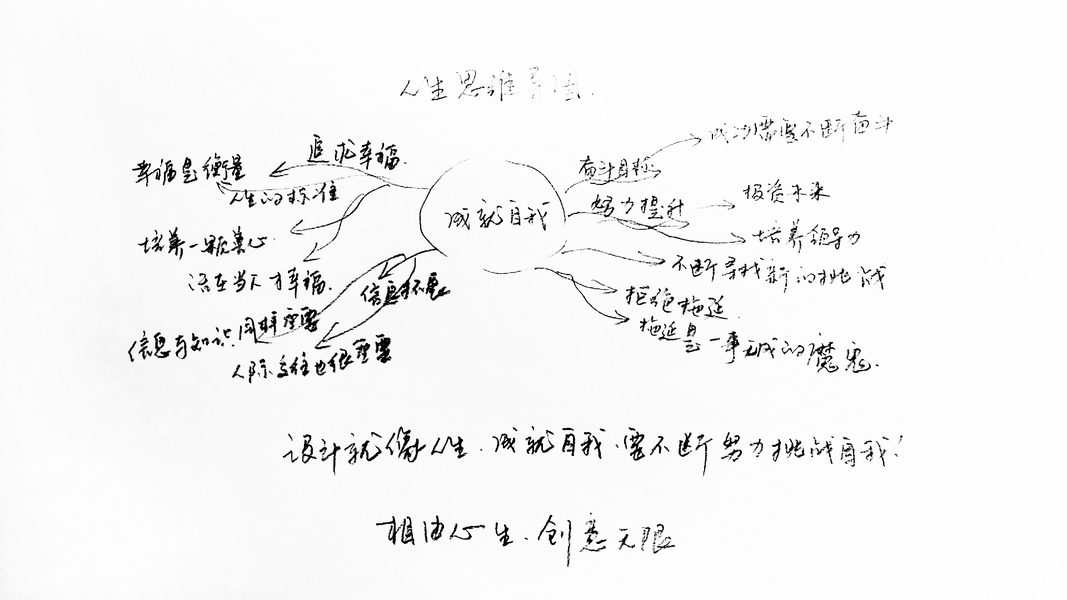 人生思维导图.
追求幸福.
幸福是衡量
人生的标准
培养一颗善心
活在当下才幸福.
信息拓展
信息与知识同样重要
人际交往也很重要
成就自我
奋斗目标
成功需要不断奋斗
努力提升
投资未来
培养领导力
不断寻找新的挑战
拒绝拖延
拖延是一事无成的魔鬼.
设计就像人生.成就自我.要不断努力挑战自我!
相由心生.创意无限